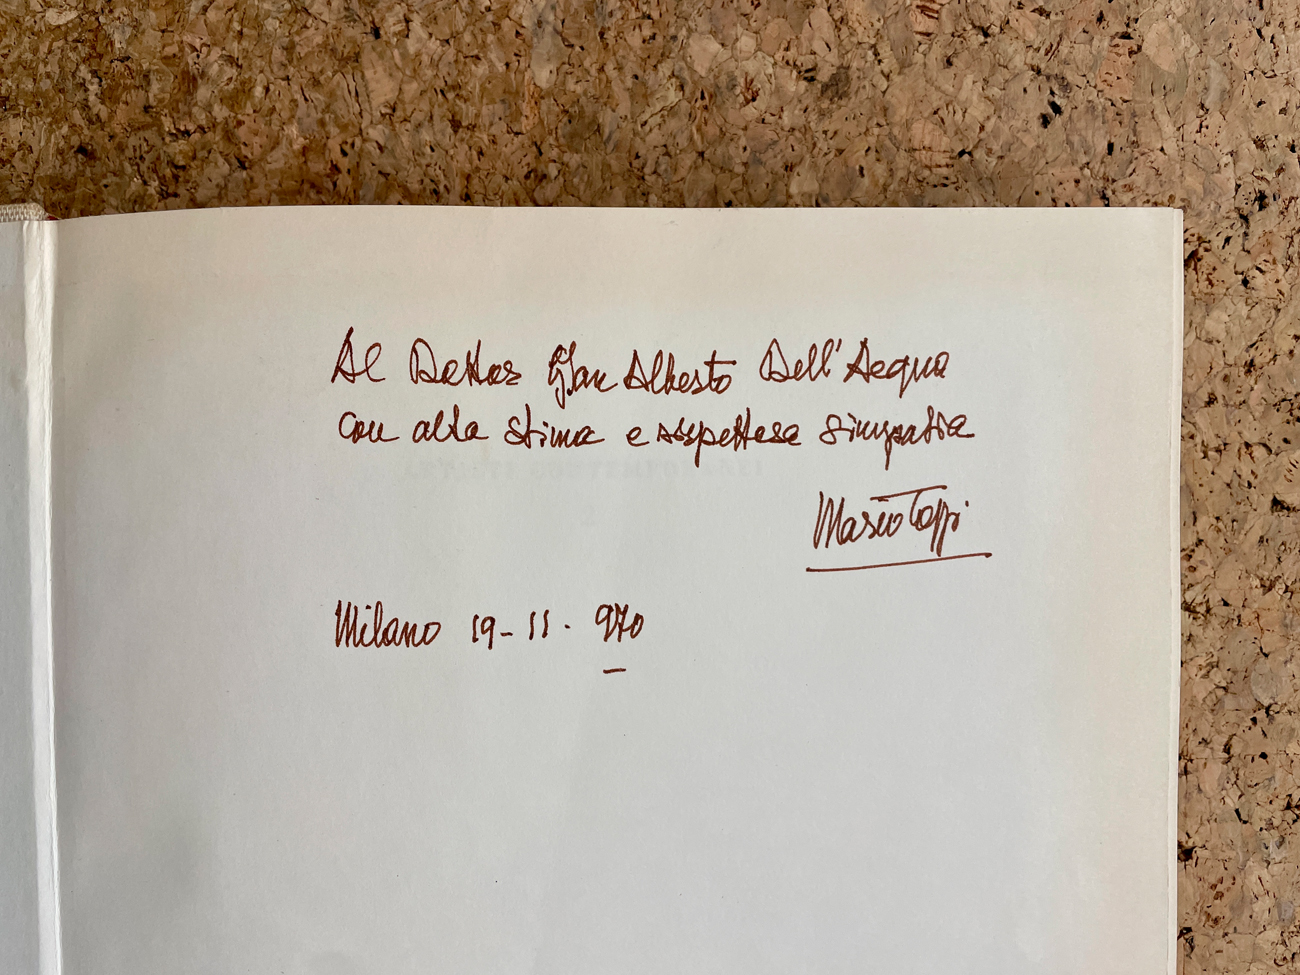 Al Dottor Gian Alberto Dell'Acqua
con alta stima e rispettosa simpatia
Mario Toppi
Milano 19-11-970